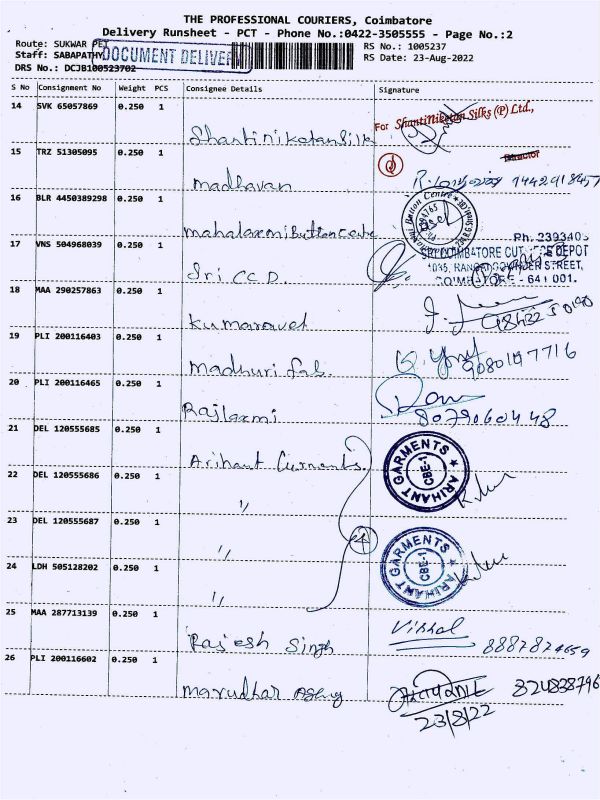 THE PROFESSIONAL COURIERS, Coimbatore
Delivery Runsheet - PCT - Phone No.:0422-3505555 - Page No.:2
Route: SUKWAR PET
RS No.: 1005237
Staff: SABAPATHY
DOCUMENT DELIVER
RS Date: 23-Aug-2022
DRS No.: DCJB100523702
S No Consignment No Weight PCS Consignee Details Signature
14 SVK 65057869 0.250 1
Shantiniketan Silk
For ShantiNiketan Silks (P) Ltd.,
Director
15 TRZ 51305095 0.250 1
Madhavan
16 BLR 4450389298 0.250 1
mahalaxmi Button centre
17 VNS 504968039 0.250 1
Sri. CC D.
Ph. 239340
SRI COIMBATORE DEPOT
STREET,
COIMBATORE - 641 001.
18 MAA 290257863 0.250 1
Kumaravel
19 PLI 200116403 0.250 1
Madhuri fab.
9080197716
20 PLI 200116465 0.250 1
Rajlaxmi
8079060448
21 DEL 120555685 0.250 1
Arihant Garments.
ARIHANT GARMENTS
CBE-1
22 DEL 120555686 0.250 1
〃
23 DEL 120555687 0.250 1
〃
ARIHANT GARMENTS
CBE-1
24 LDH 505128202 0.250 1
〃
25 MAA 287713139 0.250 1
Rajesh Singh
Vishal
8887824659
26 PLI 200116602 0.250 1
Marudhar
23/8/22